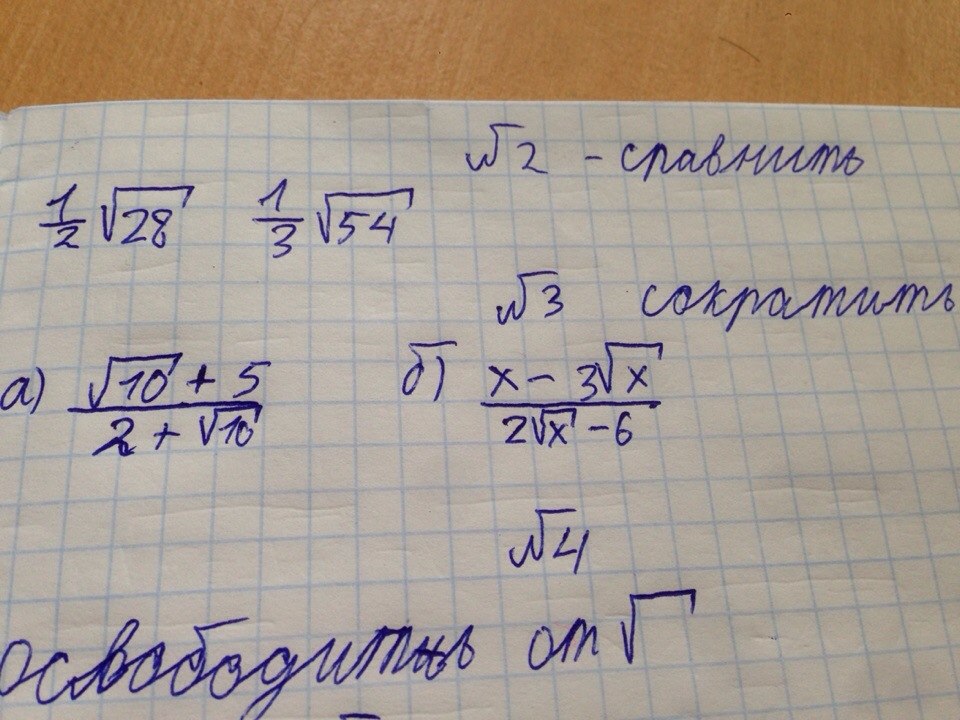 √2 - сравнить
1/2 √28 1/3 √54
√3 сократить
а) (√10 + 5)/(2 + √10) б) (x - 3√x)/(2√x - 6)
√4
освободить от √